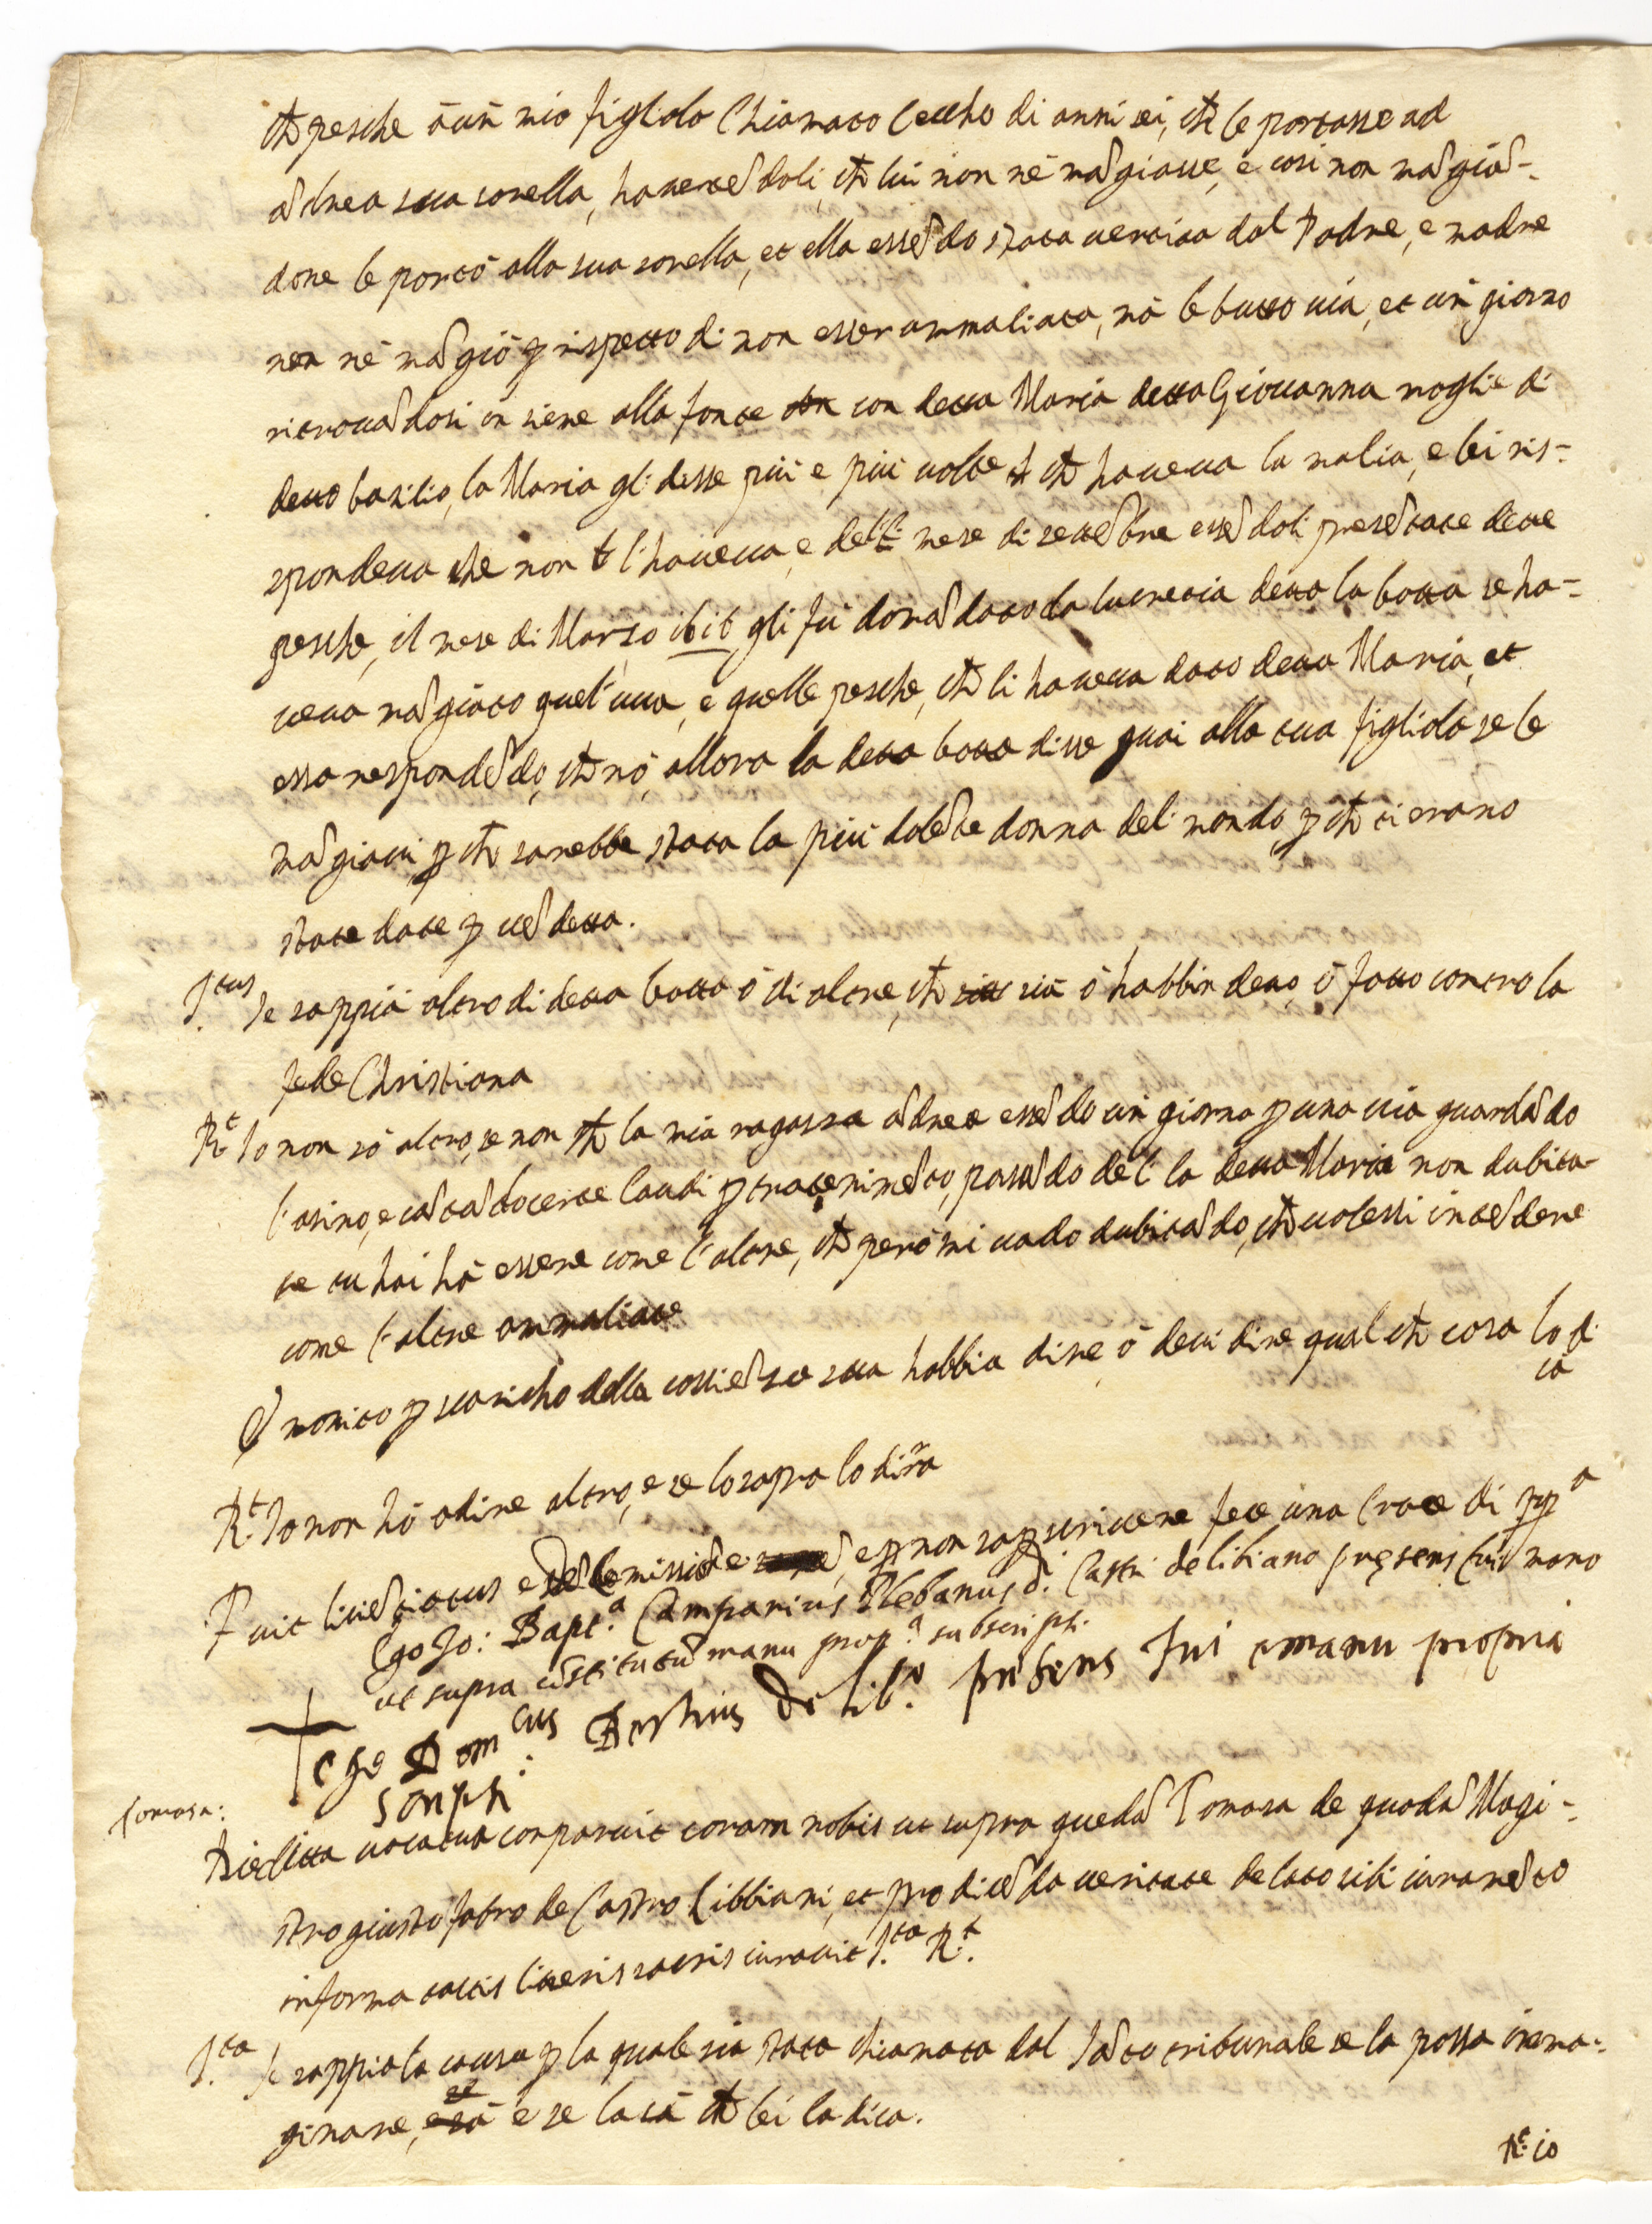 che pesche à un mio figliolo Chiamato Ceccho di anni sei, che le portasse ad
Adrea sua sorella, havertedoli, che lui non nè magiasse, e così non magiā-
done le portò alla sua sorella, et ella essēdo stata avertita dal Padre, e madre
non nè māgiò p rispetto di non esser ammaliata, mà le butto via, et un giorno
ritrovādosi in sieme alla fonte con detta Maria detta Giovanna moglie di
detto basilio, la Maria gli disse più e più volte che haveva la malia, e lei ris-
spondeva che non l'haveva, e del mese di settēbre essēdoli presētate dette
pesche, il mese di Marzo 1616 gli fu domādato da lucretia detta la botta se ha-
veva māgiato quel'uva, e quelle pesche, che li haveva dato detta Maria, et
essa respondēdo, che nò, allora la detta botta disse guai alla tua figliola se le
māgiavi, p che sarebbe stata la più dolēte donna del mondo, p che ci erano
state date p vēdetta.
I.tus Se sappia altro di detta botta ò di altre, che sia ò habbin detto, ò fatto contro la
fede Christiana
R.t Io non sò altro, se non che la mia ragazza Adrea essēdo un giorno p una via guardādo
l'asino, e cātādo certe laudi p trattenimēto, passādo de lì la detta Maria non dubita-
re tu hai hà essere come l'altre, che però mi vado dubitādo, che volessi intēdere
come l'altre ammaliate
Et monito p scaricho della cossiētia sua habbia dire, ò devi dire qual che cosa lo di
ca
R.t Io non hò à dire altro, e se lo sapra lo dirra
Fuit licētiatus e dimissus, e p non sap scrivere fece una Croce di pp.a
Ego Jo: Bapt.a Camparius Plebanus d.i Castri de libiano presens fui mano
ut supra cōstitutū manu prop.a subscripsi
Ego Dom.cus de lib.o presens fui e manu propria
scripsi
Tomasa:
Die dicta vocata comparuit coram nobis ut supra quedā Tomasa de quodā Magi-
stro giusto fabro de Castro Libbiani, et pro dicēda veritate delato sibi iuramēto
in forma tactis literis sacris iuravit I.ta R.t
I.ta Se sappia la causa p la quale sia stata chiamata dal sāto tribunale se la possa inma-
ginare, e se la sà che lei la dica.
R.t io